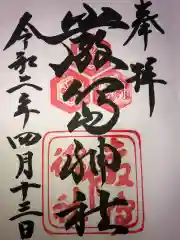 奉拝
厳島神社
令和二年四月十三日